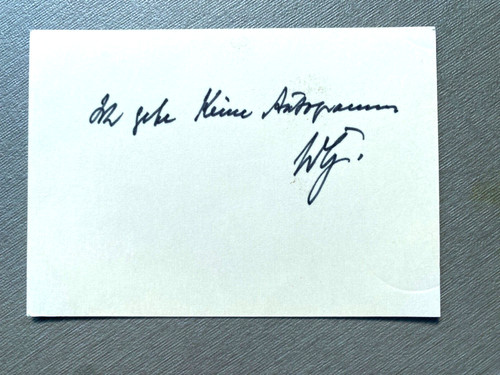 Ich gebe Keine Autogramme
WG.